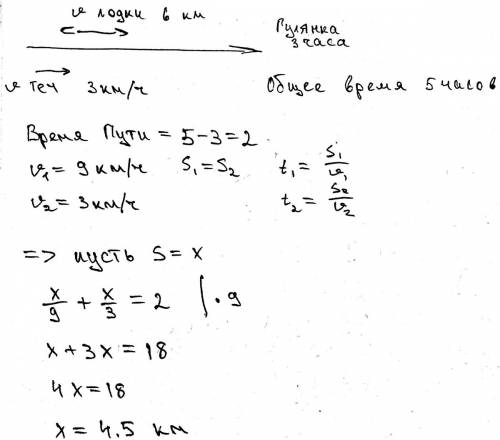 v лодки 6 км
Гулянка
3 часа
v теч 3 км/ч
Общее время 5 часов
Время Пути = 5-3=2
v₁ = 9 км/ч S₁=S₂ t₁ = S₁/v₁
v₂ = 3 км/ч t₂ = S₂/v₂
=> пусть S = x
x/9 + x/3 = 2 | · 9
x + 3x = 18
4x = 18
x = 4.5 км